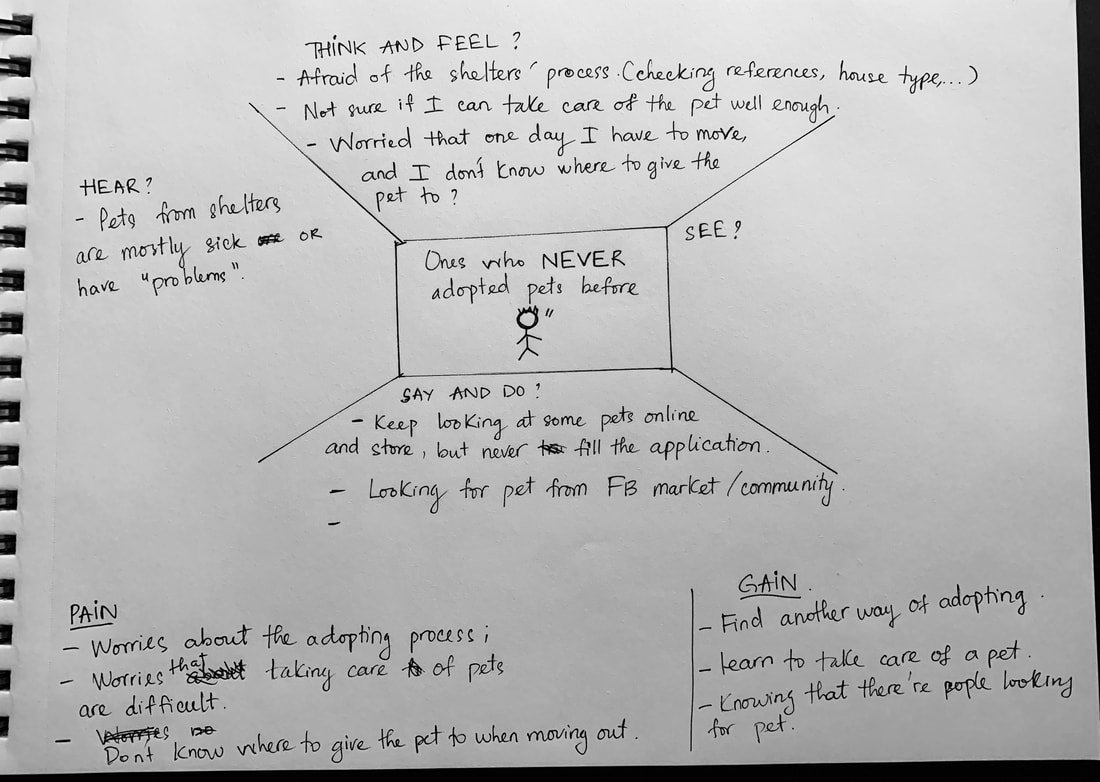 THINK AND FEEL ?
- Afraid of the shelters' process. (checking references, house type,...)
- Not sure if I can take care of the pet well enough.
- Worried that one day I have to move,
and I don't know where to give the
pet to ?
HEAR ?
- Pets from shelters
are mostly sick OR
have "problems".
SEE ?
Ones who NEVER
adopted pets before
SAY AND DO ?
- Keep looking at some pets online
and store, but never fill the application.
- Looking for pet from FB market/community.
-
PAIN
- Worries about the adopting process;
- Worries that taking care of pets
are difficult.
- Don't know where to give the pet to when moving out.
GAIN.
- Find another way of adopting.
- learn to take care of a pet.
- Knowing that there're pople looking
for pet.